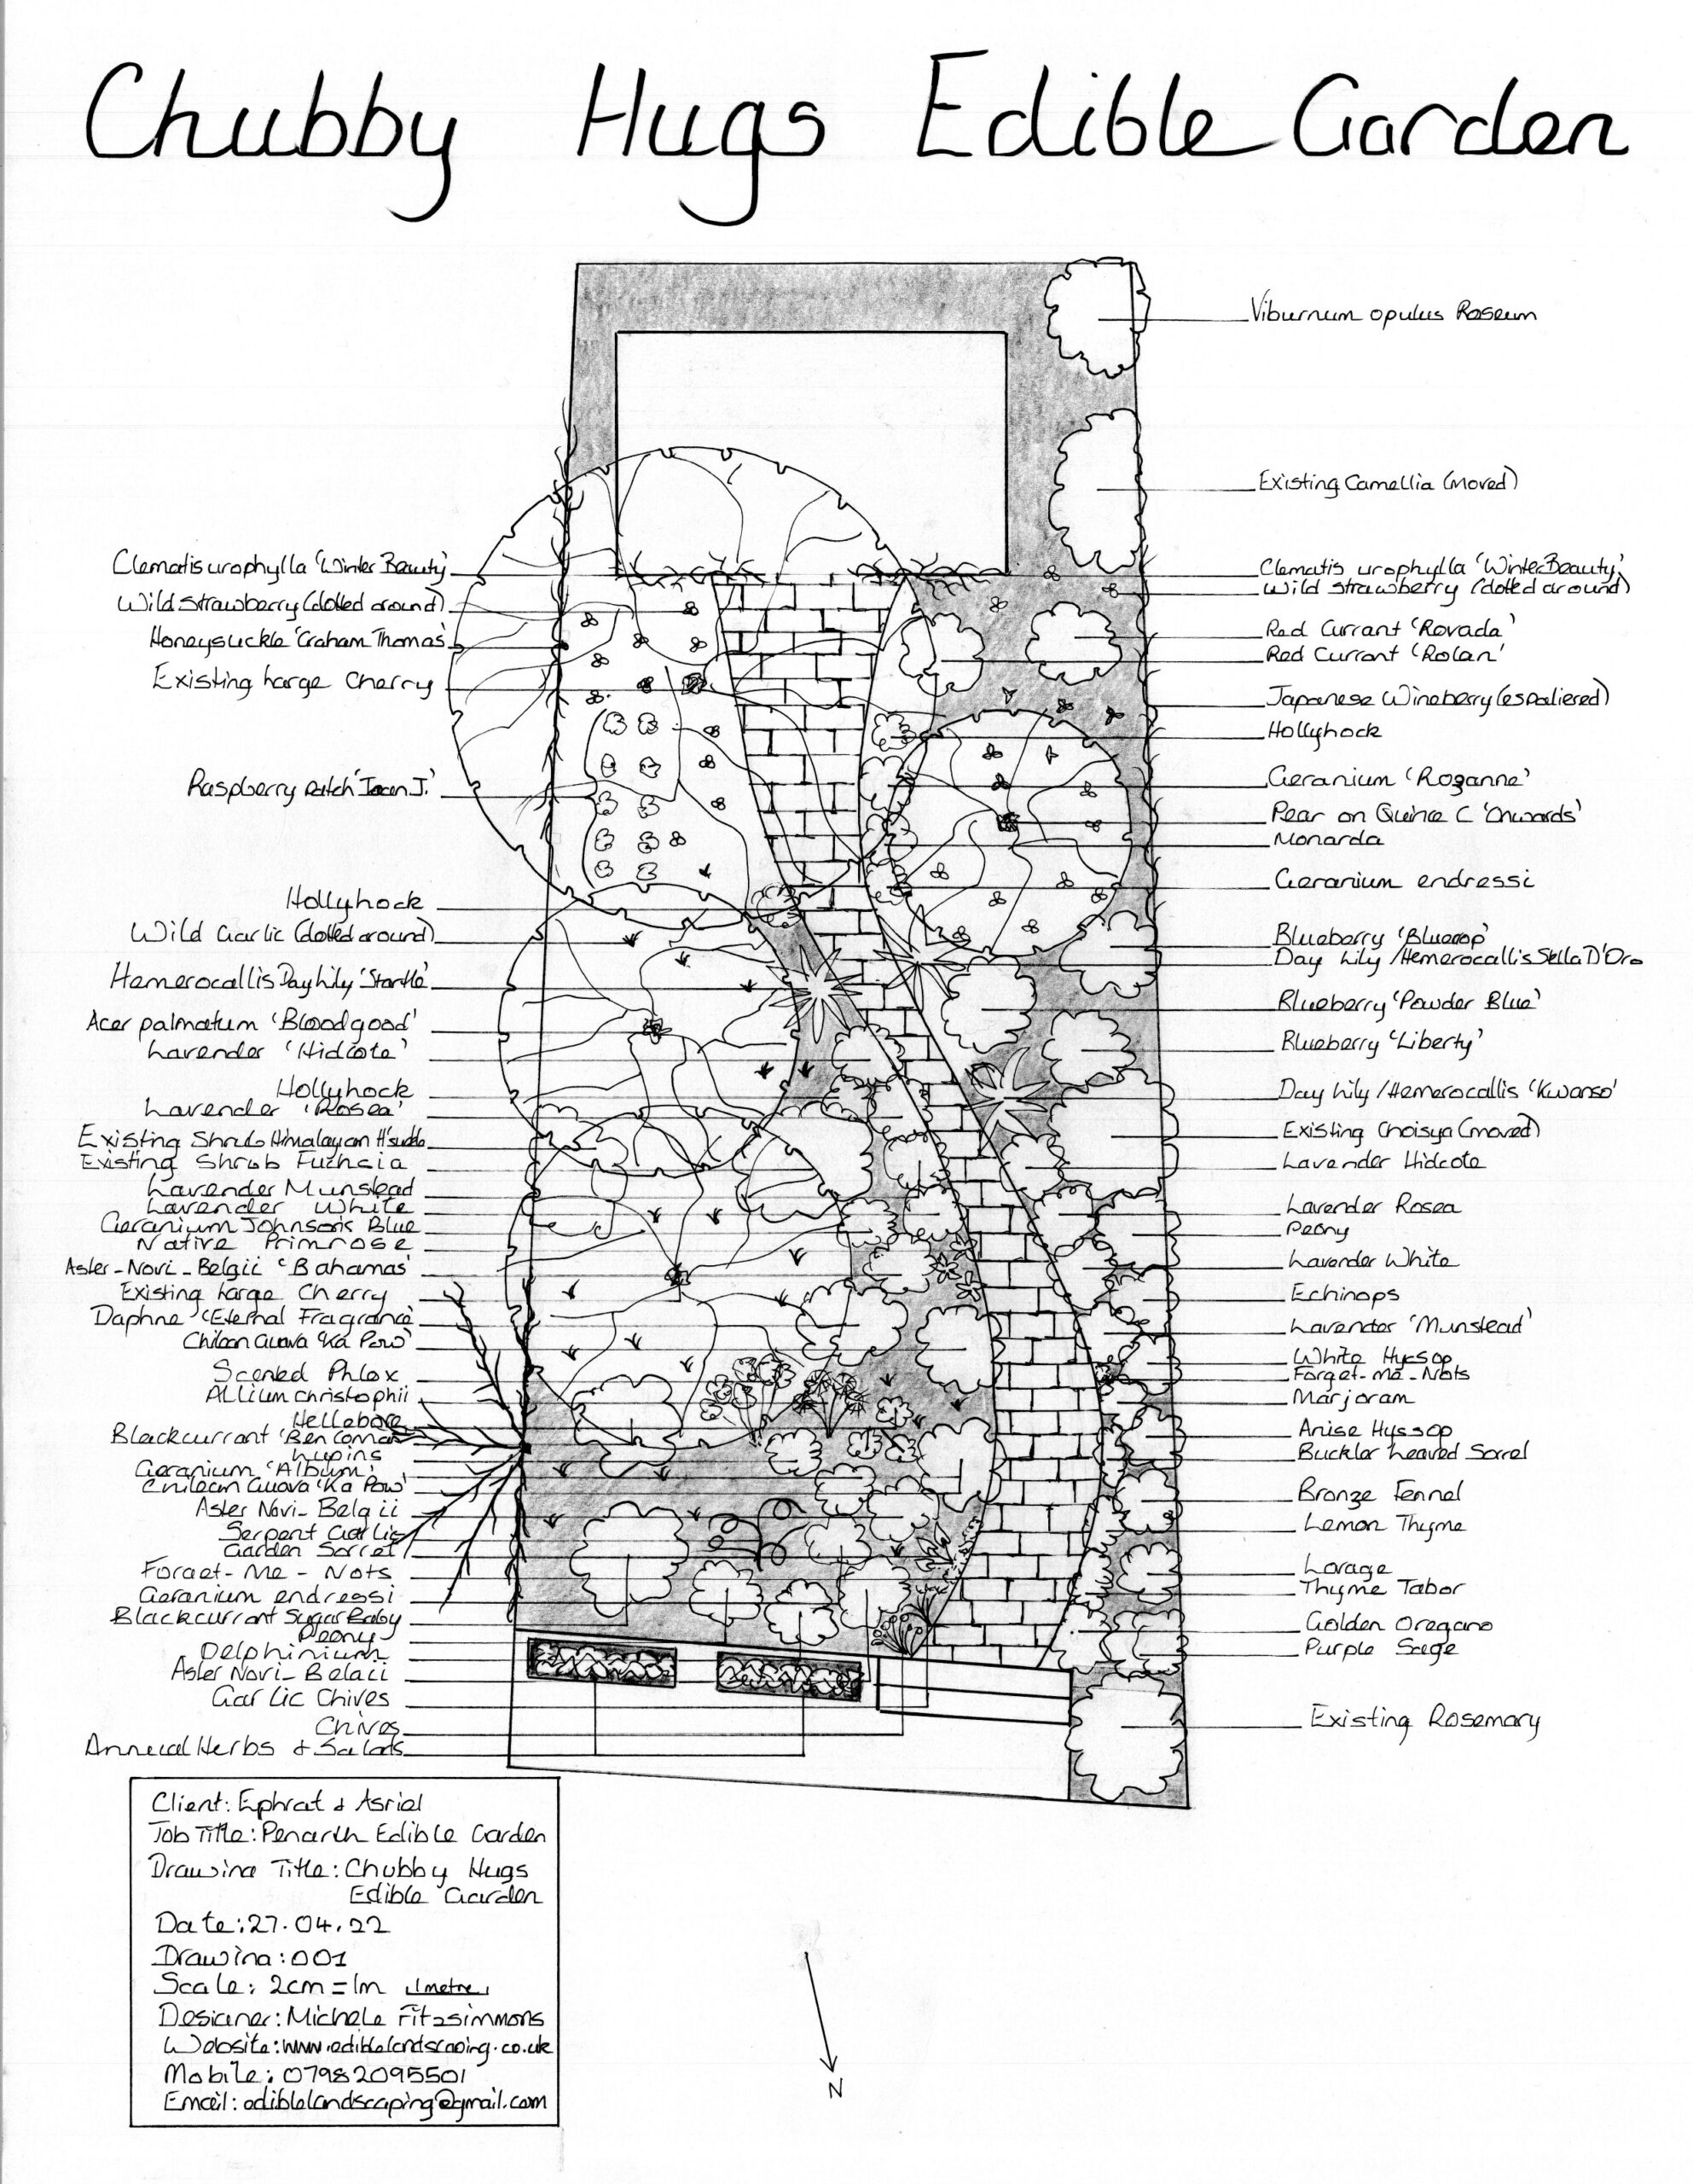 Chubby Hugs Edible Garden
Viburnum opulus Roseum
Existing Camellia (moved)
Clematis urophylla 'Winter Beauty'
Wild strawberry (dotted around)
Red Currant 'Rovada'
Red Currant 'Rolan'
Japanese Wineberry (espaliered)
Hollyhock
Geranium 'Rozanne'
Pear on Quince C 'Onwards'
Monarda
Geranium endressi
Blueberry 'Bluecrop'
Day Lily /Hemerocallis Stella D'Oro
Blueberry 'Powder Blue'
Blueberry 'Liberty'
Day Lily /Hemerocallis 'Kwanso'
Existing Choisya (moved)
Lavender Hidcote
Lavender Rosea
Peony
Lavender White
Echinops
Lavender 'Munstead'
White Hyssop
Forget-me-Nots
Marjoram
Anise Hyssop
Buckler Leaved Sorrel
Bronze Fennel
Lemon Thyme
Lovage
Thyme Tabor
Golden Oregano
Purple Sage
Existing Rosemary
Clematis urophylla 'Winter Beauty'
Wild Strawberry (dotted around)
Honeysuckle 'Graham Thomas'
Existing Large Cherry
Raspberry Patch 'Joan J.'
Hollyhock
Wild Garlic (dotted around)
Hemerocallis Day Lily 'Startle'
Acer palmatum 'Bloodgood'
Lavender 'Hidcote'
Hollyhock
Lavender 'Rosea'
Existing Shrub Himalayan H'suckle
Existing Shrub Fuchsia
Lavender Munstead
Lavender White
Geranium Johnson's Blue
Native Primrose
Aster-Novi-Belgii 'Bahamas'
Existing Large Cherry
Daphne 'Eternal Fragrance'
Chilean Guava 'Ka Pow'
Scented Phlox
Allium christophii
Hellebore
Blackcurrant 'Ben Connan'
Lupins
Geranium 'Album'
Chilean Guava 'Ka Pow'
Aster Novi-Belgii
Serpent Garlic
Garden Sorrel
Forget-Me-Nots
Geranium endressi
Blackcurrant Sugar Baby
Peony
Delphinium
Aster Novi-Belgii
Garlic Chives
Chives
Annual Herbs & Salads
Client: Ephrat & Asriel
Job Title: Penarth Edible Garden
Drawing Title: Chubby Hugs
Edible Garden
Date: 27.04.22
Drawing: 001
Scale: 2cm = 1m 1metre
Designer: Michele Fitzsimmons
Website: www.ediblelandscaping.co.uk
Mobile: 07982095501
Email: ediblelandscaping@gmail.com
N